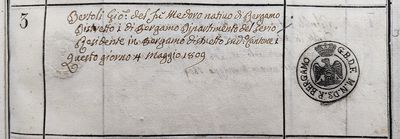 3
Bertoli Gio: del fu Medoro nativo di Bergamo
Distretto 1 di Bergamo Dipartimento del Serio
Residente in Bergamo distretto sud.º Cantone 1
Questo giorno 4 Maggio 1809
BERGAMO